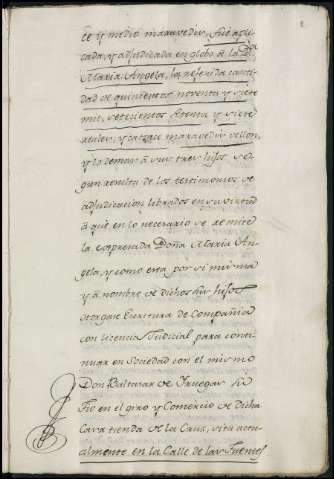 ce y medio maravedis, fue apli-
cada, y adjudicada en globo a la D.ª
Maria Angela, la referida canti-
dad de quinientos noventa y siete
mil, setecientos setenta y siete
reales, y catorce maravedis vellon,
y lo demas a sus tres hijos se-
gun resulta de los testimonios de
adjudicacion librados en su virtud
a que en lo necesario se remite
la expresada Doña Maria An-
gela, y como esta por si misma
y a nombre de dichos sus hijos
otorgase Escritura de Compañia
con licencia Judicial para conti-
nuar en Sociedad con el mismo
Don Baltasar de Yruegas su
Tio en el giro y Comercio de dicha
Casa tienda de la Cruz, sita actu-
almente en la Calle de las Fuentes